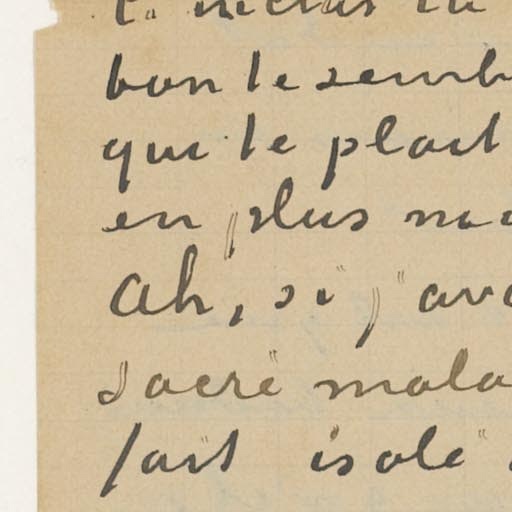 bon te semb
qui te plait
en plus
Ah, si j'av
sacré mala
fait isolé